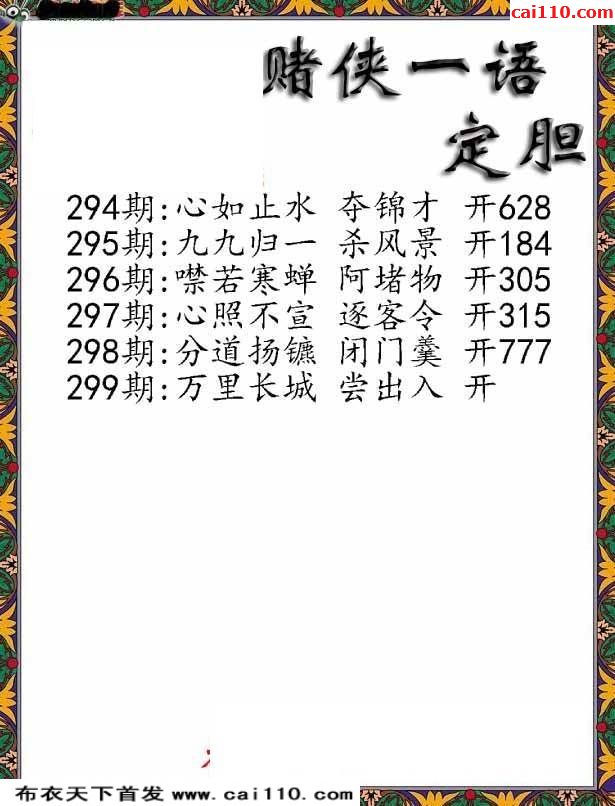 cai110.com
赌侠一语
定胆
294期:心如止水 夺锦才 开628
295期:九九归一 杀风景 开184
296期:噤若寒蝉 阿堵物 开305
297期:心照不宣 逐客令 开315
298期:分道扬镳 闭门羹 开777
299期:万里长城 尝出入 开
布衣天下首发 www.cai110.com